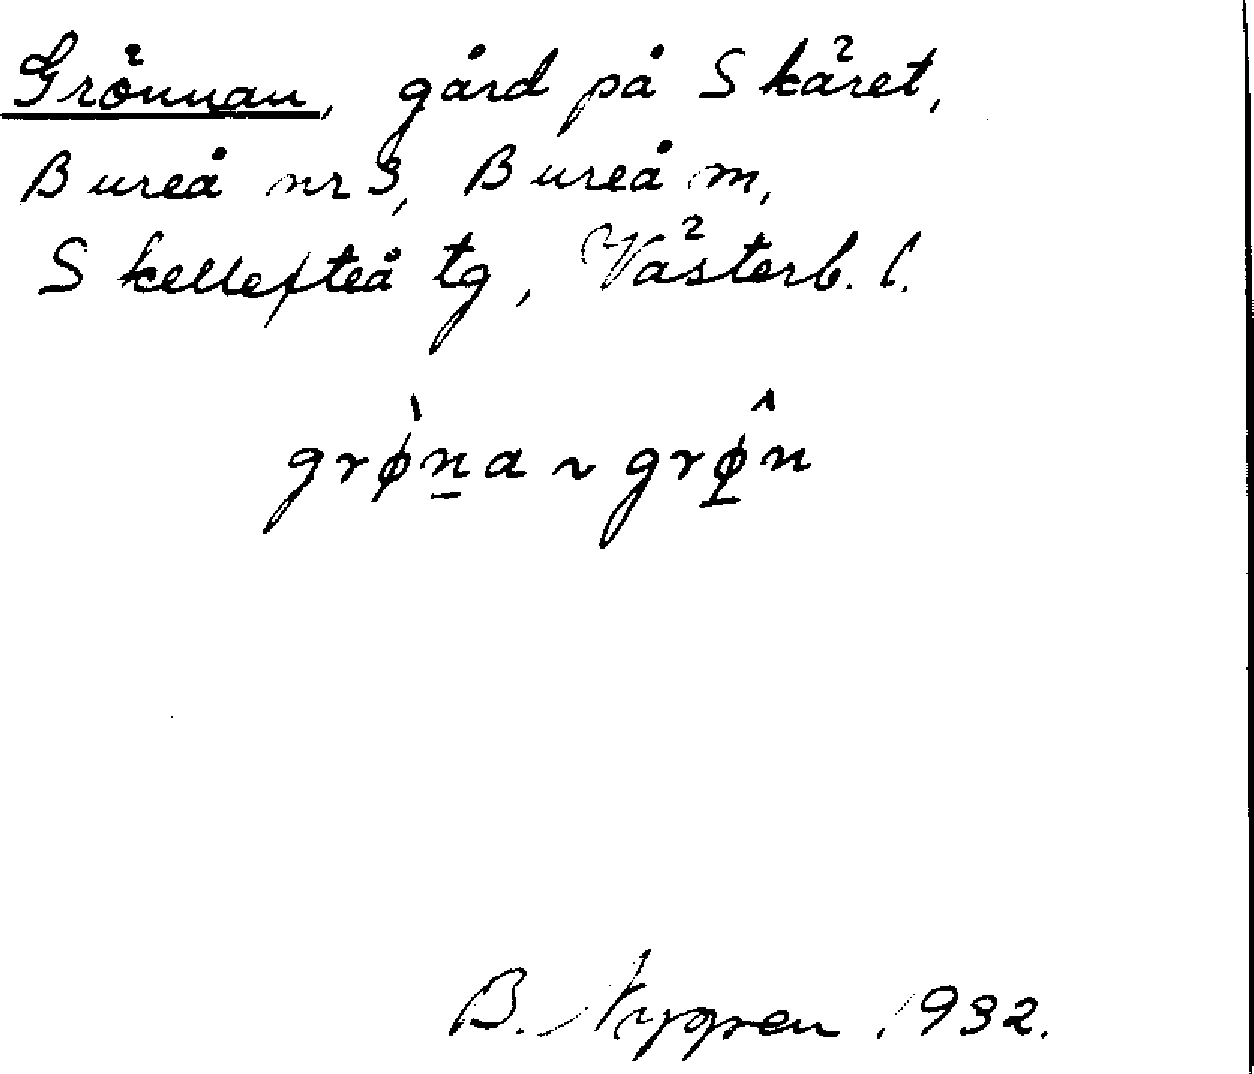 Grönnan, gård på Skäret,
Bureå nr 3, Bureå m,
Skellefteå tg, Västerb. l.
grø̀n̲a ~ grø̲̂n
B. Nygren 1932.